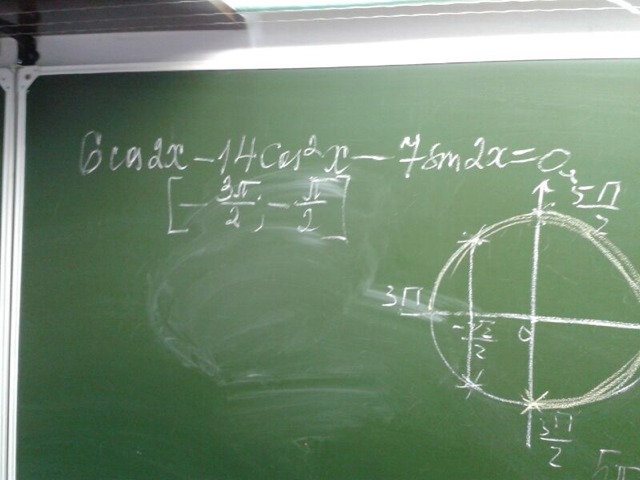 6cos2x - 14cos²x - 7sin2x = 0
[-3π/2; -π/2]
5π/2
3π
-√2/2
0
3π/2
5π